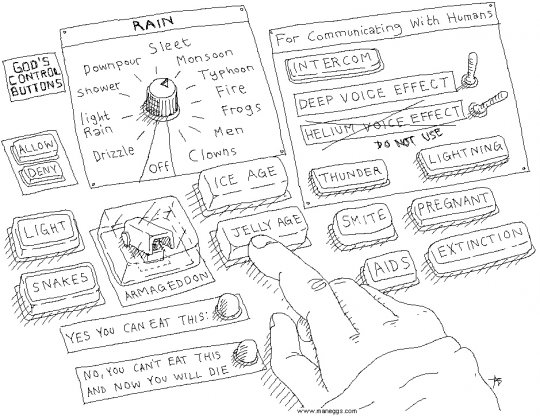 GOD'S
CONTROL
BUTTONS
RAIN
Sleet
Downpour
Monsoon
Shower
Typhoon
Fire
light
Rain
Frogs
Men
Drizzle
Off
Clowns
For Communicating With Humans
INTERCOM
DEEP VOICE EFFECT
HELIUM VOICE EFFECT
DO NOT USE
THUNDER
LIGHTNING
ALLOW
DENY
ICE AGE
LIGHT
JELLY AGE
SMITE
PREGNANT
SNAKES
ARMAGEDDON
AIDS
EXTINCTION
YES YOU CAN EAT THIS:
NO, YOU CAN'T EAT THIS
AND NOW YOU WILL DIE
www.maneggs.com